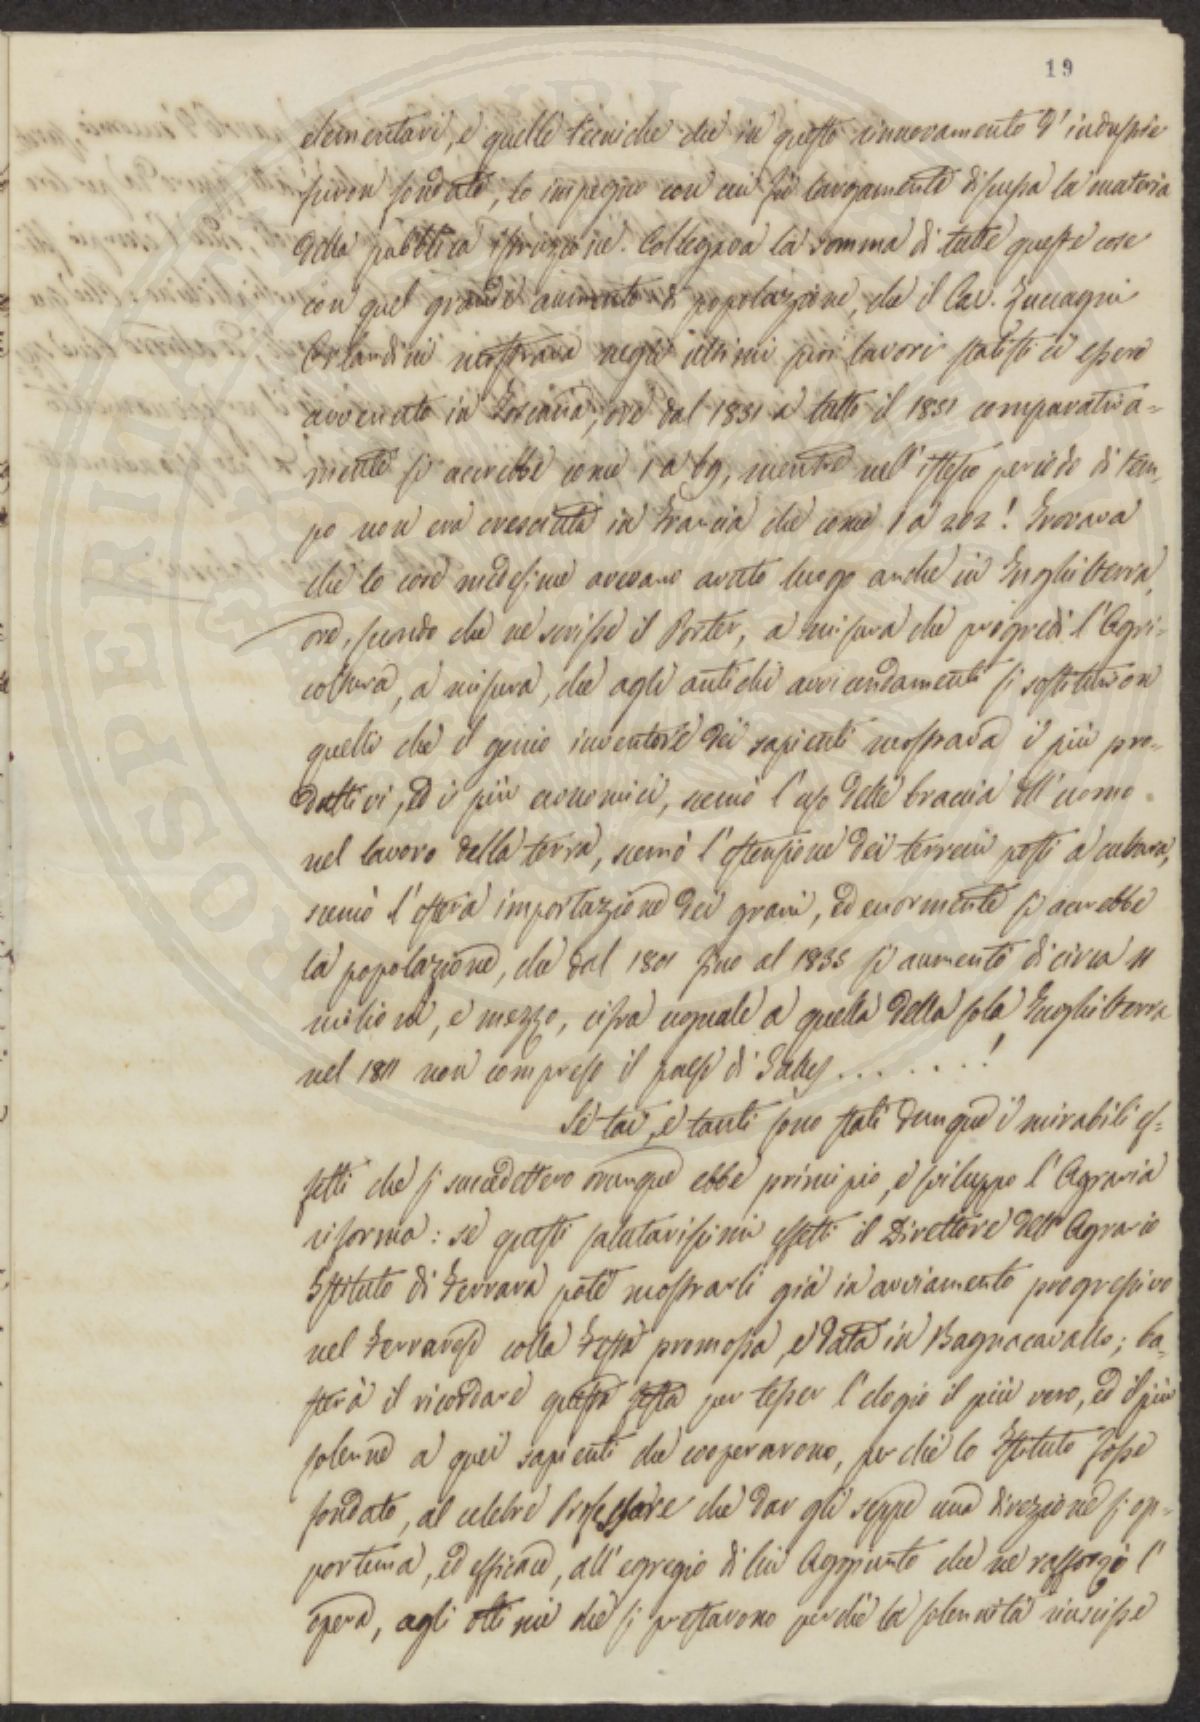 19
elementari, e quelle tecniche che in questo rinnovamento d'industrie
furon fondate, lo impegno con cui fu largamente discussa la materia
della pubblica istruzione. Collegava la somma di tutte queste cose
con quel grande aumento di popolazione, che il Cav. Zuccagni
Orlandini mostrava negli ultimi suoi lavori statistici essere
avvenuto in Toscana, ove dal 1831 a tutto il 1851 comparativa=
mente si accrebbe come 1 a 69, mentre nell'istesso periodo di tem-
po non era cresciuta in Francia che come 1 a 202! Trovava
che le cose medesime avevano avuto luogo anche in Inghilterra,
ove, secondo che ne scrisse il Porter, a misura che progredì l'Agri-
coltura, a misura, che agli antichi avvicendamenti si sostituiron
quelli che il genio inventore dei sapienti mostrava i più pro-
duttivi, ed i più economici, scemò l'uso delle braccia dell'uomo
nel lavoro della terra, scemò l'estensione dei terreni posti a cultura,
scemò l'estera importazione dei grani, ed enormemente si accrebbe
la popolazione, che dal 1801 fino al 1835 si aumentò di circa 11
milioni, e mezzo, cifra uguale a quella della sola Inghilterra
nel 1811 non compreso il paese di Galles . . . . . . . !
Se tai, e tanti sono stati dunque i mirabili ef=
fetti che si succedettero ovunque ebbe principio, e sviluppo l'Agraria
riforma: se questi salutarissimi effetti il Direttore dell'Agrario
Istituto di Ferrara potè mostrarli già in avviamento progressivo
nel Ferrarese colla Festa promossa, e data in Bagnacavallo; ba-
sterà il ricordare questa festa per tesser l'elogio il più vero, ed il più
solenne a quei sapienti che cooperarono, perchè lo Istituto fosse
fondato, al celebre Professore che dar gli seppe una direzione sì op-
portuna, ed efficace, all'egregio di lui Aggiunto che ne rafforzò l'
opera, agli ottimi che si prestarono perchè la solennità riuscisse
PROSPERITÀ